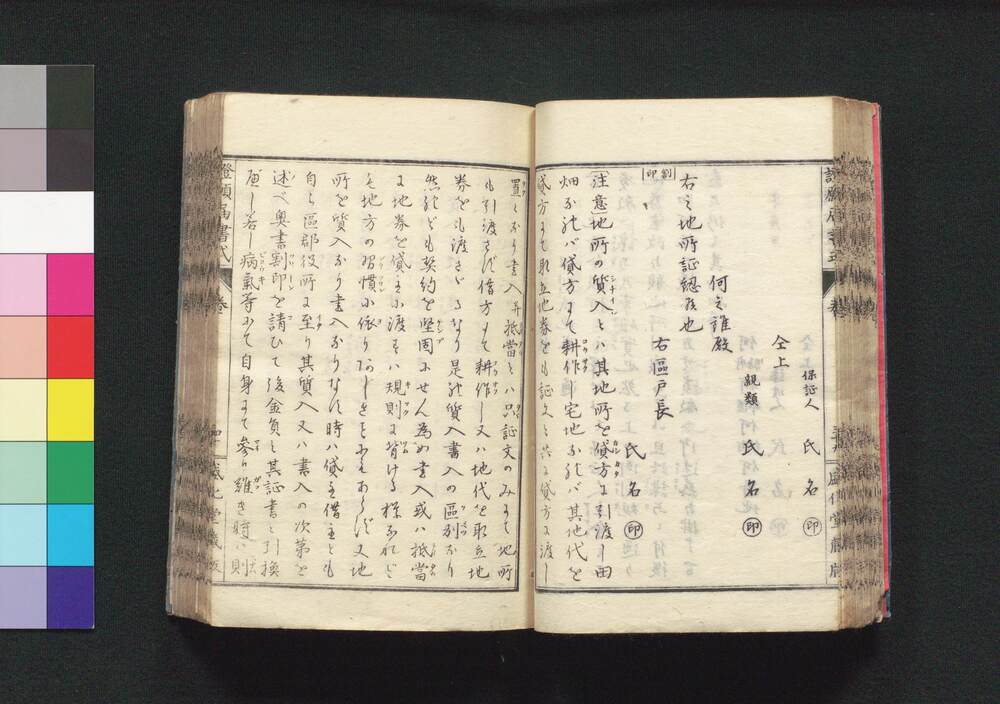 保証人 氏名 ㊞
仝上
親類 氏名 ㊞
何之誰殿
右之地所証總〆也
右區戸長 氏名 ㊞
割印
注意地所の質入とハ其地所を貸方に引渡し田
畑なれバ貸方にて耕作し宅地なれバ其地代を
貸方にて取立地券をも証文と共に貸方に渡し
置くなり書入并抵當とハ只証文のみにて地所
も引渡さず借方にて耕作し又ハ地代を取立地
券をも渡さゞるなり是れ質入書入の區別なり
然れども契約を堅固にせん為め書入或ハ抵當
に地券を貸主に渡すハ規則に背ける様なれど
も地方の習慣に依り
所を質入なり書入なりなす時ハ貸主借主とも
自ら區郡役所に至り其質入又ハ書入の次第を
述べ奥書割印を請ひて後金員と其証書と引換
べし若し病氣等にて自身にて参り難き時ハ
證願届書式
卷
盛化堂藏版